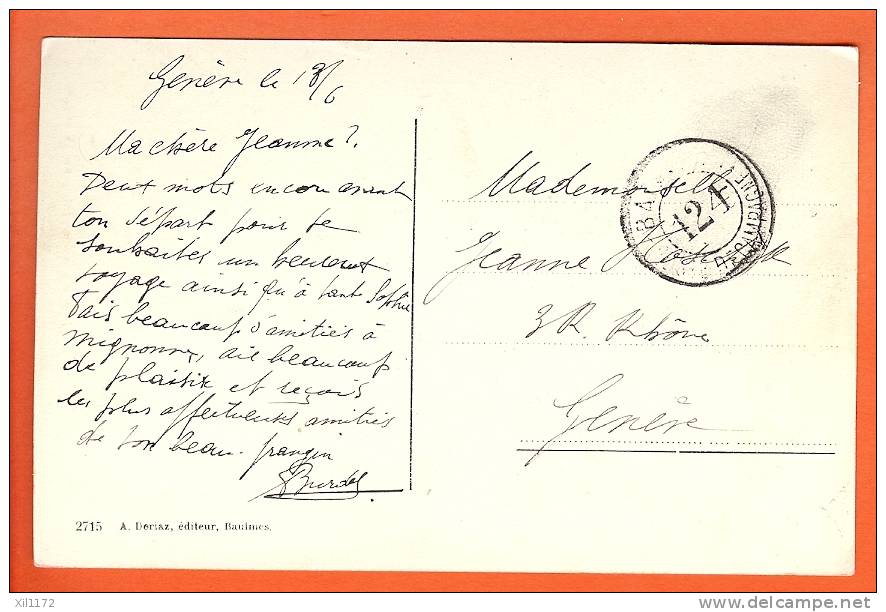 Genève le 18/6
Ma chère Jeanne
Deux mots encor avant
ton départ pour te
souhaiter un heureux
voyage ainsi qu'à tante Sophie
Fais beaucoup d'amitiés à
mignonne, aie beaucoup
de plaisir et reçois
les plus affectueuses amitiés
de ton beau-frangin
Burdel
2715 A. Deriaz, éditeur, Baulmes.
Mademoiselle
Jeanne
3 R. Rhône
Genève
BAT
124
DE CAMPAGNE
xil1172
delcampe.net